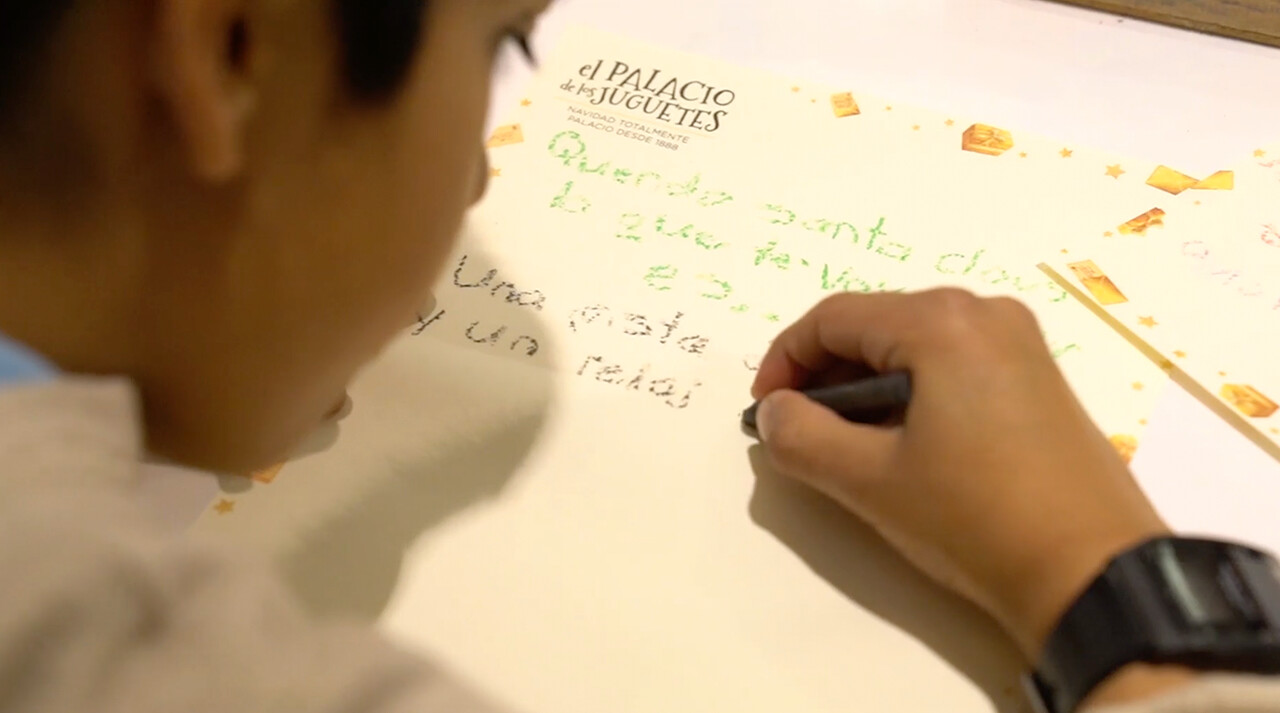 el PALACIO
de los JUGUETES
NAVIDAD TOTALMENTE
PALACIO DESDE 1888
Querido santa claus
lo que te
es..
Una pista
y un reloj